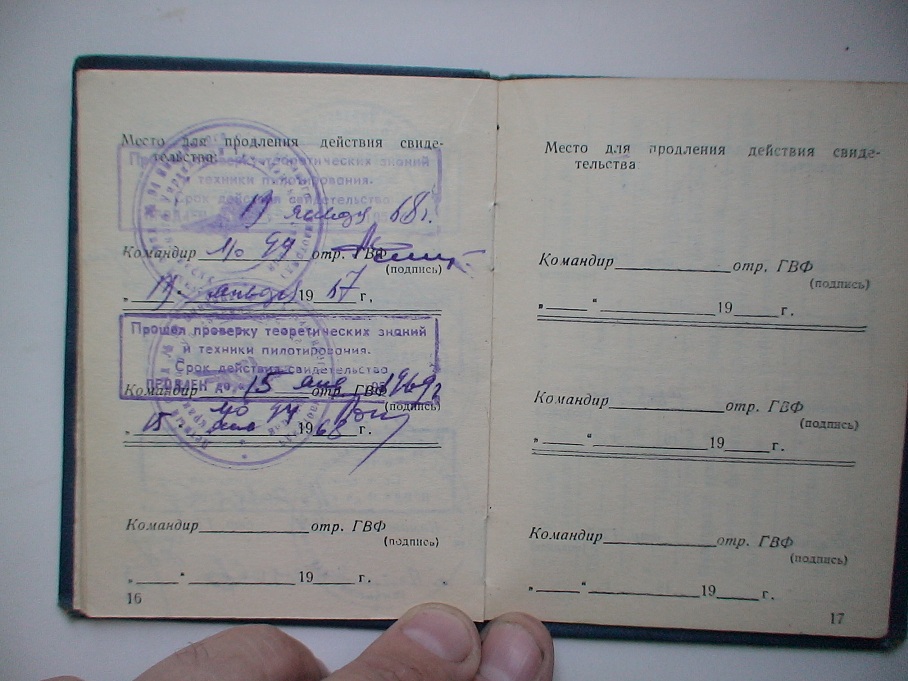 Место для продления действия свиде-
тельства:
Прошел проверку теоретических знаний
и техники пилотирования.
Срок действия свидетельства
19 января 68 г.
Командир 99 отр. ГВФ
(подпись)
„19“ января 1967 г.
Прошел проверку теоретических знаний
и техники пилотирования.
Срок действия свидетельства
ПРОДЛЕН до „15 янв 1969 г.
Командир отр. ГВФ
(подпись)
„15 1968 г.
Командир отр. ГВФ
(подпись)
„ “ 19 г.
16
Место для продления действия свиде-
тельства
Командир отр. ГВФ
(подпись)
„ “ 19 г.
Командир отр. ГВФ
(подпись)
„ “ 19 г.
Командир отр. ГВФ
(подпись)
„ “ 19 г.
17